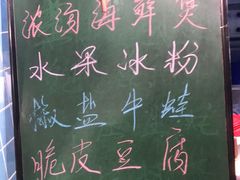 浓汤海鲜煲
水果冰粉
椒盐牛蛙
脆皮豆腐